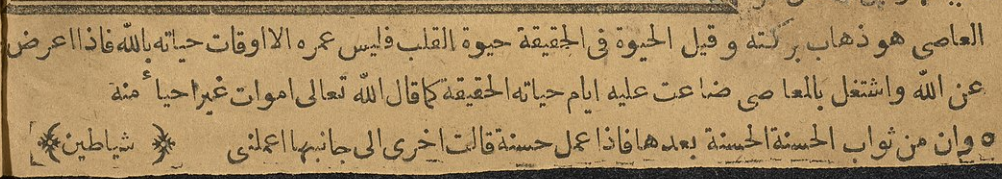 العاصى هو ذهاب بركته وقيل الحيوة فى الحقيقة حيوة القلب فليس عمره الا اوقات حياته بالله فاذا اعرض
عن الله واشتغل بالمعاصى ضاعت عليه ايام حياته الحقيقة كما قال الله تعالى اموات غير احياء منه
وان من ثواب الحسنة الحسنة بعدها فاذا عمل حسنة قالت اخرى الى جانبها اعملنى ﴿ شياطين ﴾